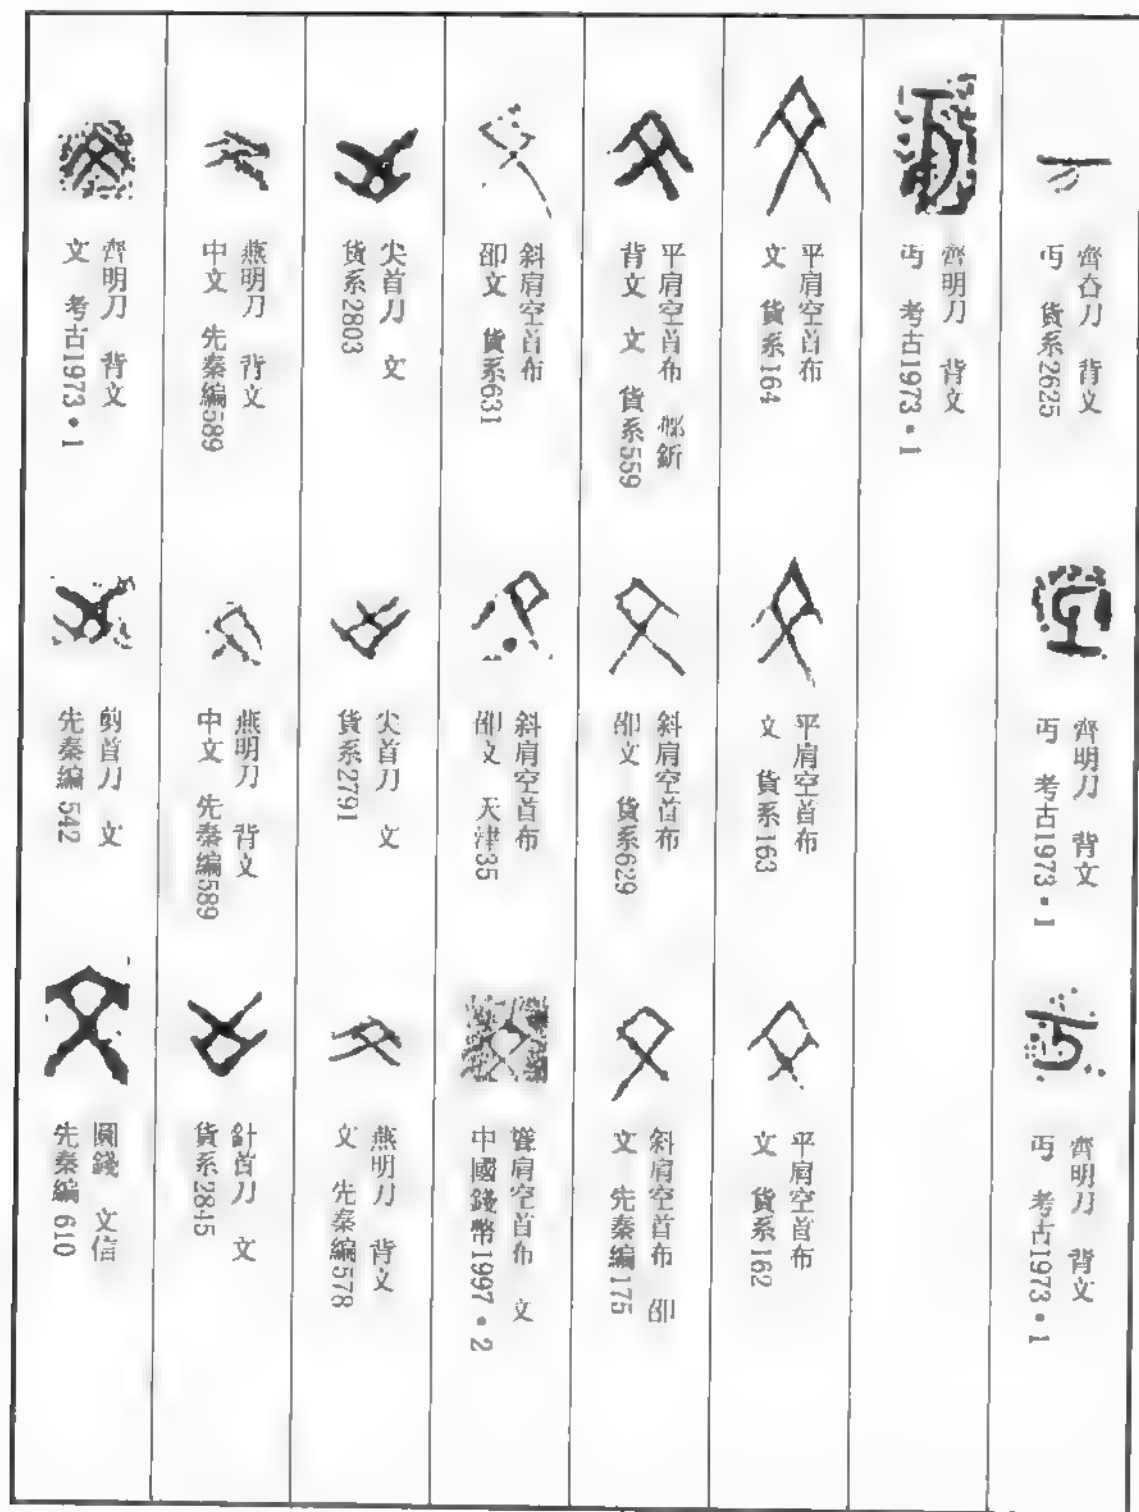 齊夻刀 背文
丏 貨系2625
齊明刀 背文
丏 考古1973·1
齊明刀 背文
丏 考古1973·1
齊明刀 背文
丏 考古1973·1
平肩空首布
文 貨系164
平肩空首布
文 貨系163
平肩空首布
文 貨系162
平肩空首布 釿
背文 文 貨系559
斜肩空首布
卲文 貨系629
斜肩空首布 卲
文 先秦編175
斜肩空首布
卲文 貨系631
斜肩空首布
卲文 天津35
聳肩空首布 文
中國錢幣1997·2
尖首刀 文
貨系2803
尖首刀 文
貨系2791
燕明刀 背文
文 先秦編578
燕明刀 背文
中文 先秦編589
燕明刀 背文
中文 先秦編589
針首刀 文
貨系2845
齊明刀 背文
文 考古1973·1
剪首刀 文
先秦編542
圓錢 文信
先秦編610